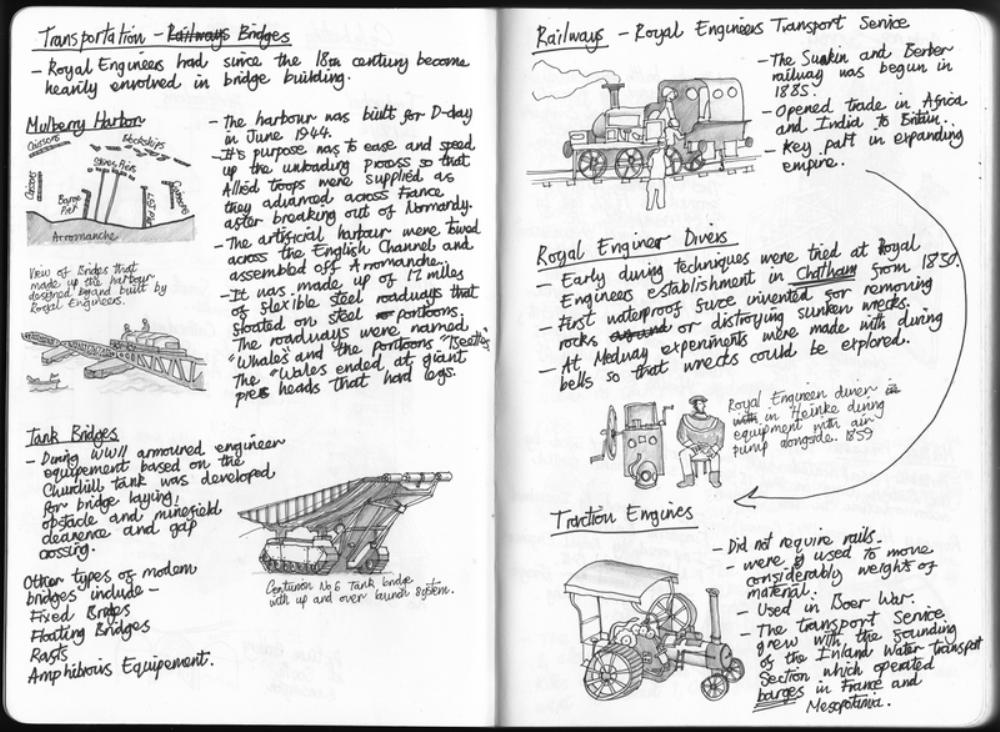 Transportation - Railways Bridges
- Royal Engineers had since the 18th century become
heavily envolved in bridge building.
Mulberry Harbor
Caissons
Blockships
Stores Piers
Caissons
Barge
Pier
LST Pier
Caissons
Arromanche
View of Bridges that
made up the harbour
designed and built by
Royal Engineers.
- The harbour was built for D-day
in June 1944.
- It's purpose was to ease and speed
up the unloading process so that
Allied troops were supplied as
they advanced across France
after breaking out of Normandy.
- The artificial harbour were towed
across the English Channel and
assembled off Arromanche.
- It was made up of 12 miles
of flexible steel roadways that
floated on steel pontoons.
The roadways were named
"Whales" and the pontoons "Beetles"
The "Wales ended at giant
pier heads that had legs.
Tank Bridges
- During WWII armoured engineer
equipement based on the
Churchill tank was developed
for bridge laying,
obstacle and minefield
clearence and gap
crossing.
Other types of modern
bridges include -
Fixed Bridges
Floating Bridges
Rafts
Amphibious Equipement.
Centurion No 6 Tank bridge
with up and over launch system.
Railways - Royal Engineers Transport Service
- The Suakin and Berber
railway was begun in
1885.
- Opened trade in Africa
and India to Britain.
- Key part in expanding
empire.
Royal Engineer Divers
- Early diving techniques were tried at Royal
Engineers establishment in Chatham from 1830.
- First waterproof fuse invented for removing
rocks or distroying sunken wrecks.
- At Medway experiments were made with diving
bells so that wrecks could be explored.
Royal Engineer diver in
with in Heinke diving
equipment with air
pump alongside. 1859
Traction Engines
- Did not require rails.
- were used to move
considerably weights of
material.
- Used in Boer War.
- The transport Service
grew with the founding
of the Inland Water transport
Section which operated
barges in France and
Mesopotamia.